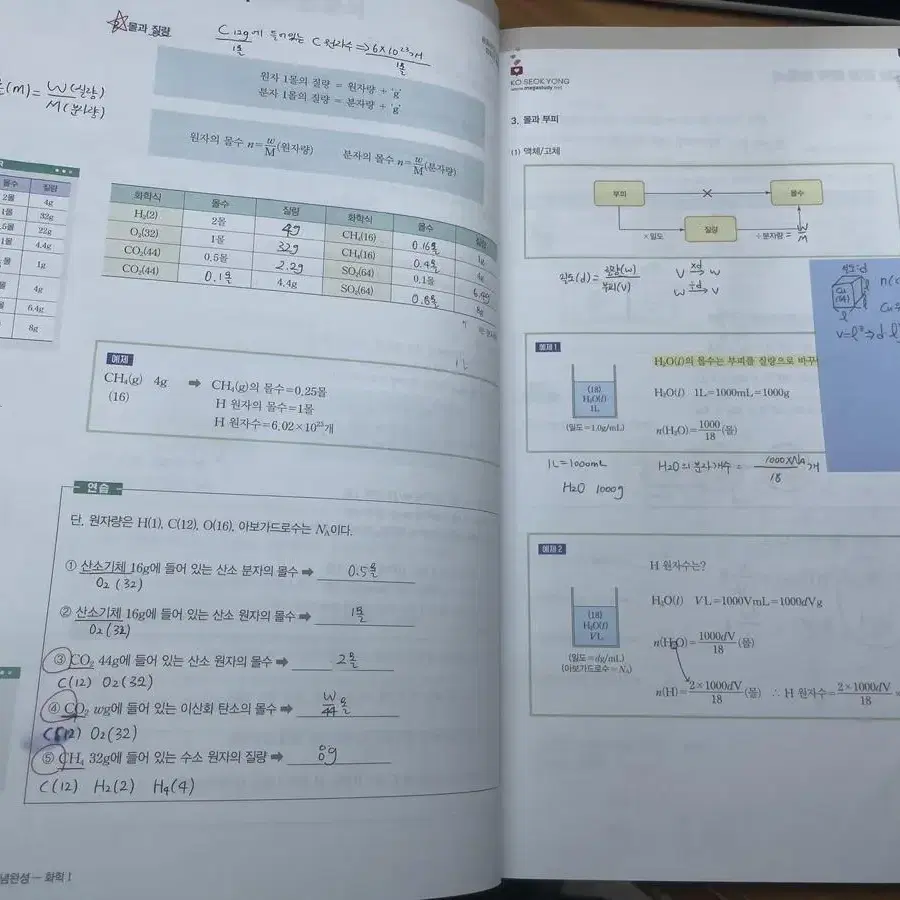 몰과 질량
C 12g에 들어있는 C 원자수 => 6×10²³개
1몰
1몰
(M) = W(질량) / M(분자량)
원자 1몰의 질량 = 원자량 + 'g'
분자 1몰의 질량 = 분자량 + 'g'
원자의 몰수 n = w/M (원자량) 분자의 몰수 n = w/M (분자량)
몰수 질량
2몰 4g
1몰 32g
22g
4.4g
1g
4g
6.4g
8g
화학식 몰수 질량 화학식 몰수 질량
H₂(2) 2몰 4g CH₄(16) 0.16몰
O₂(32) 1몰 32g CH₄(16) 0.4몰
CO₂(44) 0.5몰 2.2g SO₂(64) 0.1몰
CO₂(44) 0.1몰 4.4g SO₂(64) 0.8몰 8g
예제
CH₄(g) 4g ➡ CH₄(g)의 몰수=0.25몰
(16) H 원자의 몰수=1몰
H 원자수=6.02×10²³개
연습
단, 원자량은 H(1), C(12), O(16), 아보가드로수는 N_A이다.
① 산소기체 16g에 들어 있는 산소 분자의 몰수 ➡ 0.5몰
O₂(32)
② 산소기체 16g에 들어 있는 산소 원자의 몰수 ➡ 1몰
O₂(32)
③ CO₂ 44g에 들어 있는 산소 원자의 몰수 ➡ 2몰
C(12) O₂(32)
④ CO₂ wg에 들어 있는 이산화 탄소의 몰수 ➡ W/44 몰
C(12) O₂(32)
⑤ CH₄ 32g에 들어 있는 수소 원자의 질량 ➡ 8g
C(12) H₂(2) H₄(4)
념완성 – 화학 I
KO SEOK YONG
www.megastudy.net
3. 몰과 부피
(1) 액체/고체
부피 × 몰수
×밀도 질량 ÷분자량 = W/M
밀도(d) = 질량(W) / 부피(V) V ×d→ W
W ÷d→ V
밀도:d
Cu
(64)
l
l
l
V=l³ ⇒ d·l³
예제 1
H₂O(l)의 몰수는 부피를 질량으로 바꾸
(18)
H₂O(l)
1L
H₂O(l) 1L=1000mL=1000g
(밀도=1.0g/mL)
n(H₂O)=1000/18 (몰)
1L=1000mL H2O의 분자개수 = 1000×NA / 18 개
H₂O 1000g
예제 2
H 원자수는?
(18)
H₂O(l)
VL
H₂O(l) VL=1000VmL=1000dVg
n(H₂O)=1000dV/18 (몰)
(밀도=dg/mL)
(아보가드로수=N_A)
n(H)=2×1000dV/18 (몰) ∴ H 원자수=2×1000dV/18